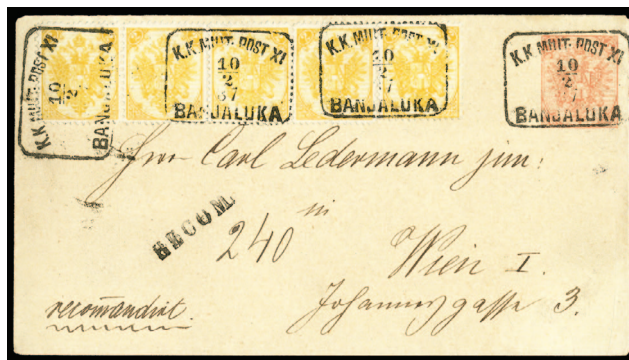 K.K. MILIT. POST XI
10
2
BANJALUKA
K.K. MILIT. POST XI
10
2
87
BANJALUKA
K.K. MILIT. POST XI
10
2
87
BANJALUKA
K.K. MILIT. POST XI
10
2
87
BANJALUKA
Herrn Carl Ledermann jun:
in
RECOM.
240
Wien I.
recomandirt.
Johannesgasse 3.